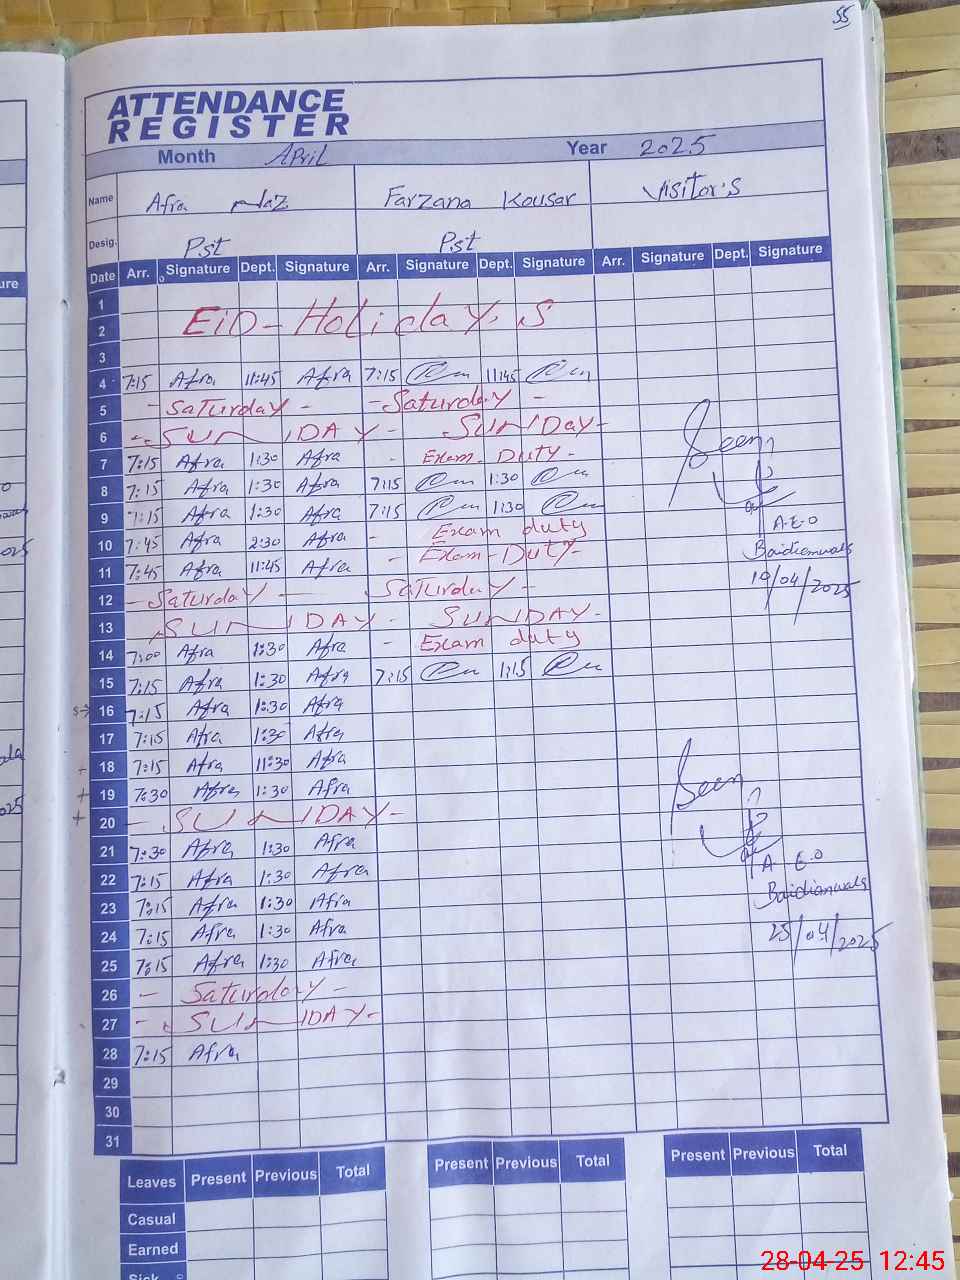 55
ATTENDANCE
REGISTER
Month April Year 2025
Name Afra Naz Farzana Kousar Visitor's
Desig. Pst Pst
Date Arr. Signature Dept. Signature Arr. Signature Dept. Signature Arr. Signature Dept. Signature
1
2 EiD-Holidays
3
4 7:15 Afra 11:45 Afra 7:15 11:45
5 - Saturday - - Saturday -
6 - SUNDAY - SUNDay -
7 7:15 Afra 1:30 Afra - Exam Duty -
8 7:15 Afra 1:30 Afra 7:15 1:30
9 7:15 Afra 1:30 Afra 7:15 1:30
10 7:45 Afra 2:30 Afra - Exam duty
11 7:45 Afra 11:45 Afra - Exam-Duty-
12 - Saturday - Saturday -
13 - SUNDAY - SUNDAY -
14 7:00 Afra 1:30 Afra - Exam duty
15 7:15 Afra 1:30 Afra 7:15 1:15
16 7:15 Afra 1:30 Afra
17 7:15 Afra 1:30 Afra
18 7:15 Afra 11:30 Afra
19 7:30 Afra 1:30 Afra
20 - SUNDAY -
21 7:30 Afra 1:30 Afra
22 7:15 Afra 1:30 Afra
23 7:15 Afra 1:30 Afra
24 7:15 Afra 1:30 Afra
25 7:15 Afra 1:30 Afra
26 - Saturday -
27 - SUNDAY -
28 7:15 Afra
29
30
31
Seen
A.E.O
Baidianwala
10/04/2025
Seen
A.E.O
Baidianwala
25/04/2025
Leaves Present Previous Total Present Previous Total Present Previous Total
Casual
Earned
Sick
28-04-25 12:45